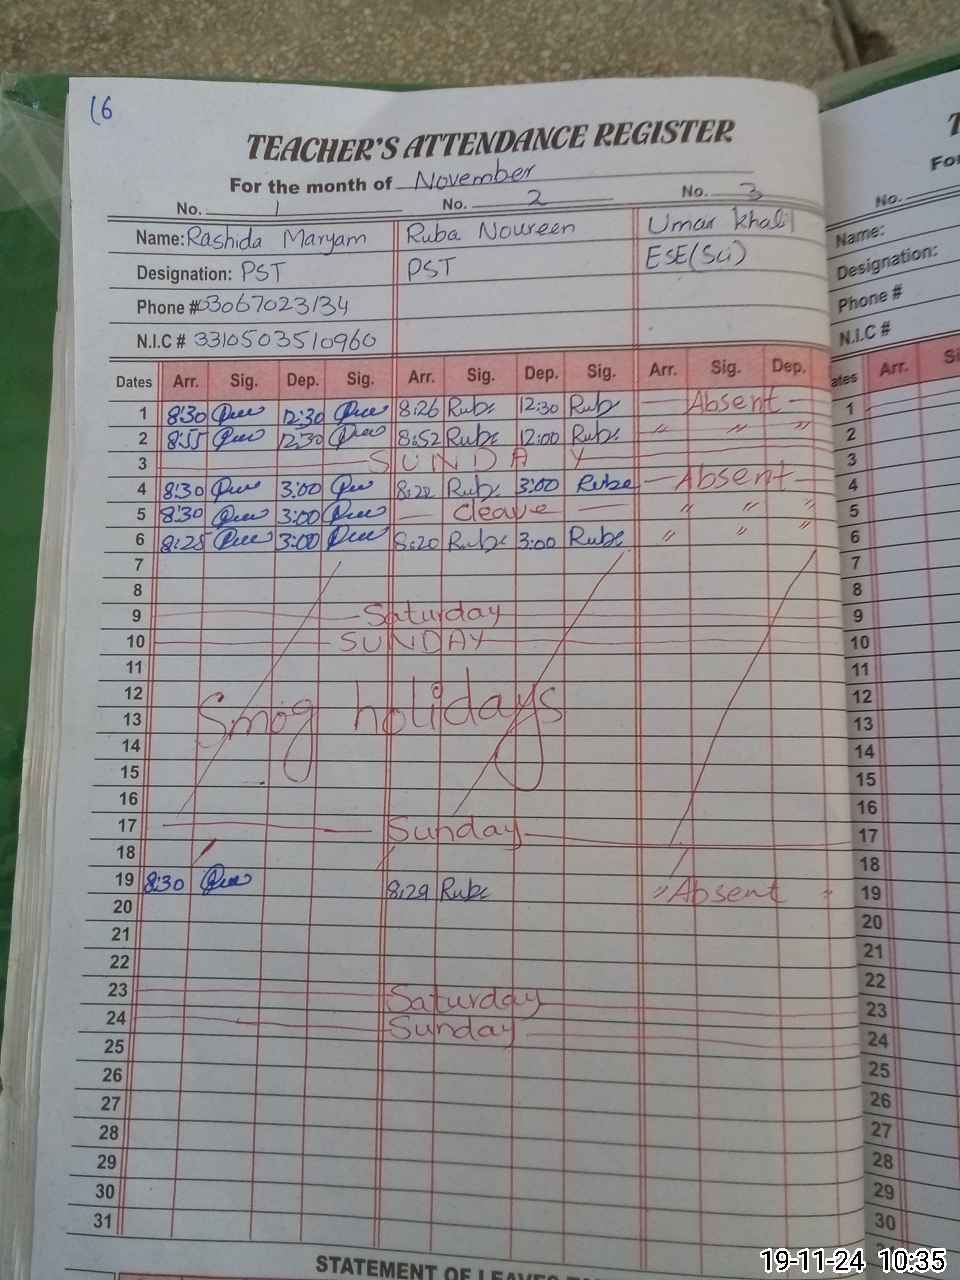 16
TEACHER'S ATTENDANCE REGISTER
For the month of November
No. 1 No. 2 No. 3
Name: Rashida Maryam Ruba Noureen Umar Khalil
Designation: PST PST ESE(Sci)
Phone # 03067023134
N.I.C # 3310503510960
Dates Arr. Sig. Dep. Sig. Arr. Sig. Dep. Sig. Arr. Sig. Dep.
1 8:30 12:30 8:26 Rube 12:30 Rube Absent
2 8:55 12:30 8:52 Rube 12:00 Rube " " "
3 SUNDAY
4 8:30 3:00 8:22 Rube 3:00 Rube Absent
5 8:30 3:00 cleave " " "
6 8:25 3:00 8:20 Rube 3:00 Rube " " "
7
8
9 Saturday
10 SUNDAY
11
12
Smog holidays
13
14
15
16
17 Sunday
18
19 8:30 8:29 Rube " Absent "
20
21
22
23 Saturday
24 Sunday
25
26
27
28
29
30
31
STATEMENT OF LEAVES
T
For
No.
Name:
Designation:
Phone #
N.I.C #
ates Arr. Si
1
2
3
4
5
6
7
8
9
10
11
12
13
14
15
16
17
18
19
20
21
22
23
24
25
26
27
28
29
30
19-11-24 10:35